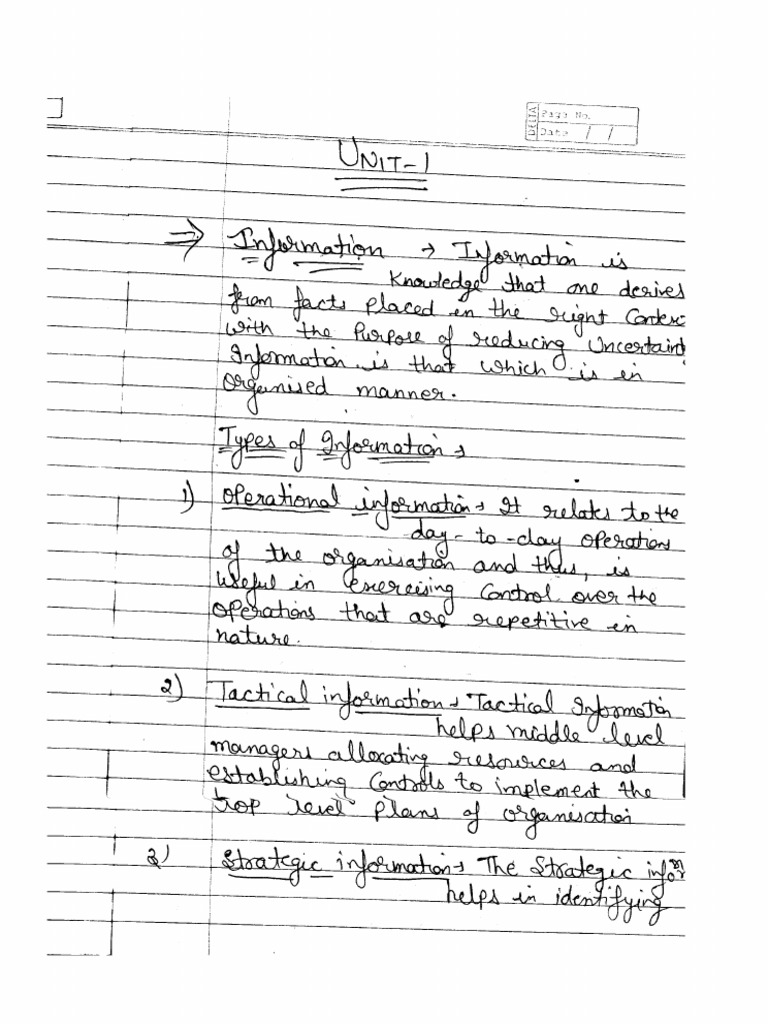 DELTA
Page No.
Date / /
UNIT-1
⇒ Information → Information is
Knowledge that one derives
from facts placed in the right Contex
with the Purpose of reducing Uncertaint
Information is that which is in
Organised manner.
Types of Information →
1) Operational information → It relates to the
day-to-day operations
of the organisation and thus, is
useful in exercising Control over the
operations that are repetitive in
nature.
2) Tactical information → Tactical Information
helps middle level
managers allocating resources and
establishing Controls to implement the
top level plans of organisation
3) Strategic information → The Strategic infor
helps in identifying